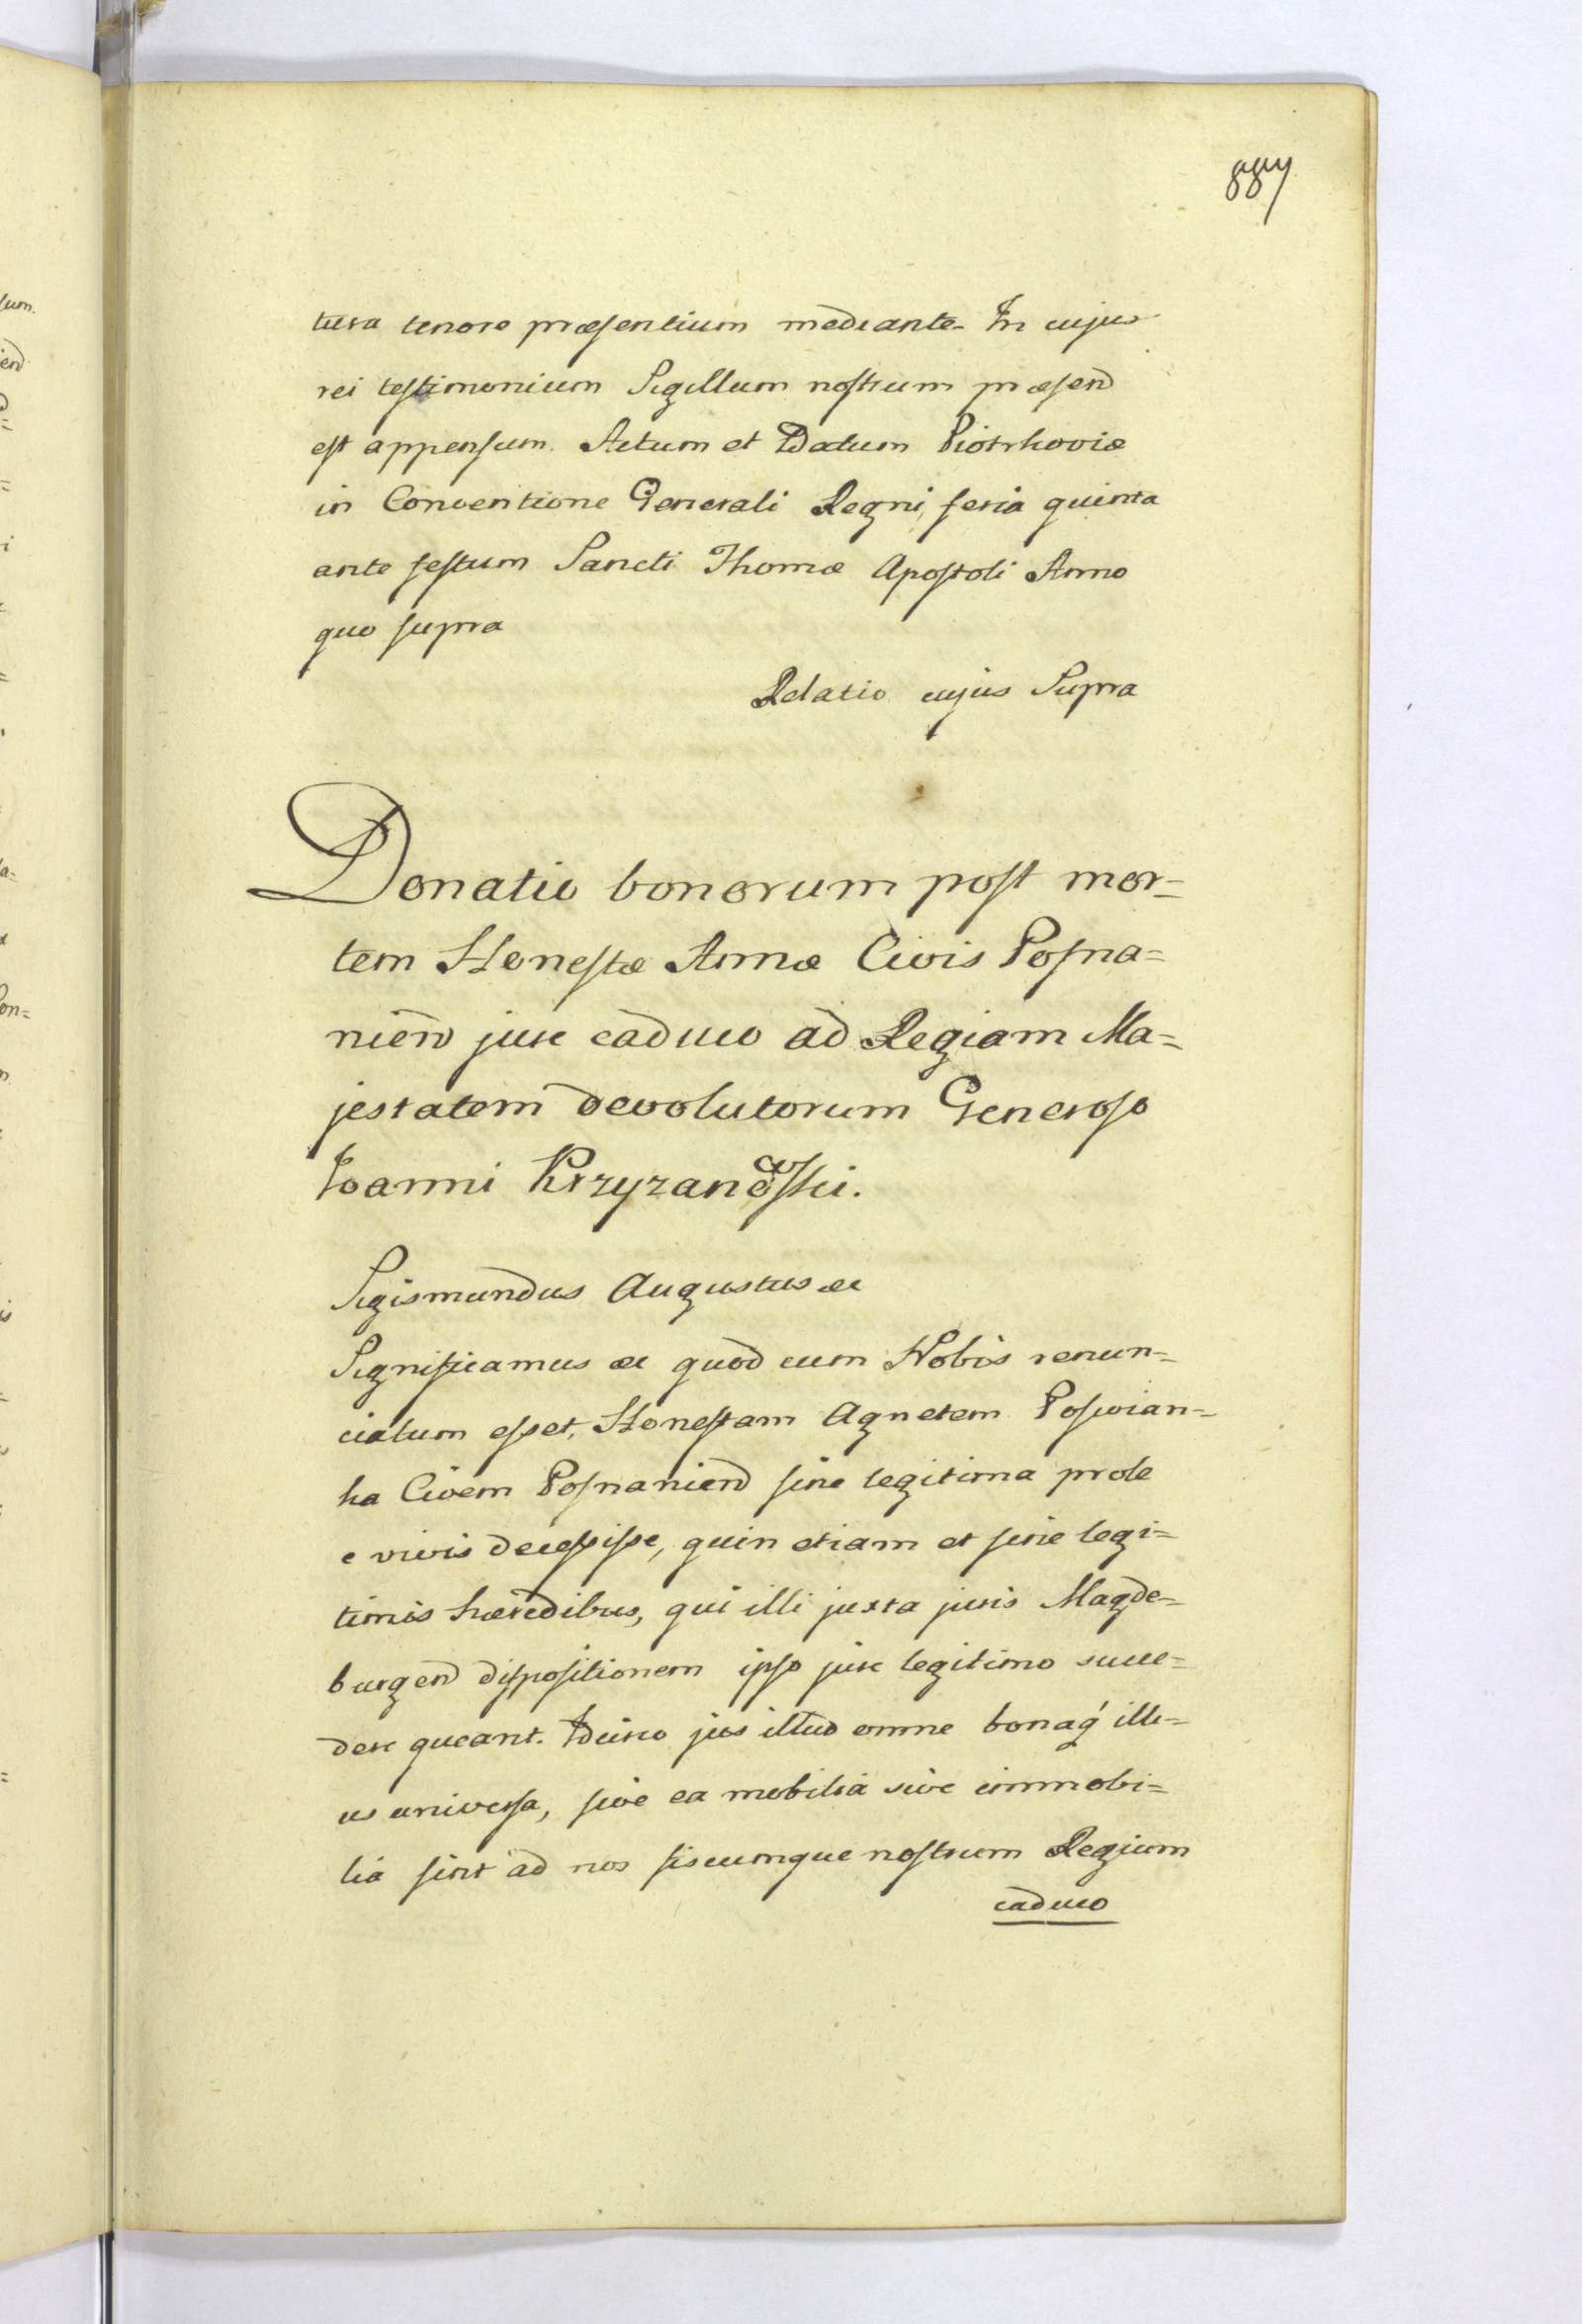 887
tura tenore præsentium mediante. In cujus
rei testimonium Sigillum nostrum præsen̄
est appensum. Actum et Datum Piotrkoviæ
in Conventione Generali Regni, feria quinta
ante festum Sancti Thomæ Apostoli Anno
quo supra
Relatio cujus Supra
Donatio bonorum post mor=
tem Honestæ Annæ Civis Posna=
nien̄ jure caduco ad Regiam Ma=
jestatem devolutorum Generoso
Joanni Krzyzanowski.
Sigismundus Augustus &c
Significamus &c quod cum Nobis renun=
ciatum esset, Honestam Agnetem Poswian=
ka Civem Posnanien̄ sine legitima prole
e vivis decessisse, quin etiam et sine legi=
timis hæredibus, qui illi juxta juris Magde=
burgen̄ dispositionem ipso jure legitimo succe=
dere queant. Idcirco jus illud omne bonaq́ illi=
us universa, sive ea mobilia sive immobi=
lia sint ad nos fiscumque nostrum Regium
caduco